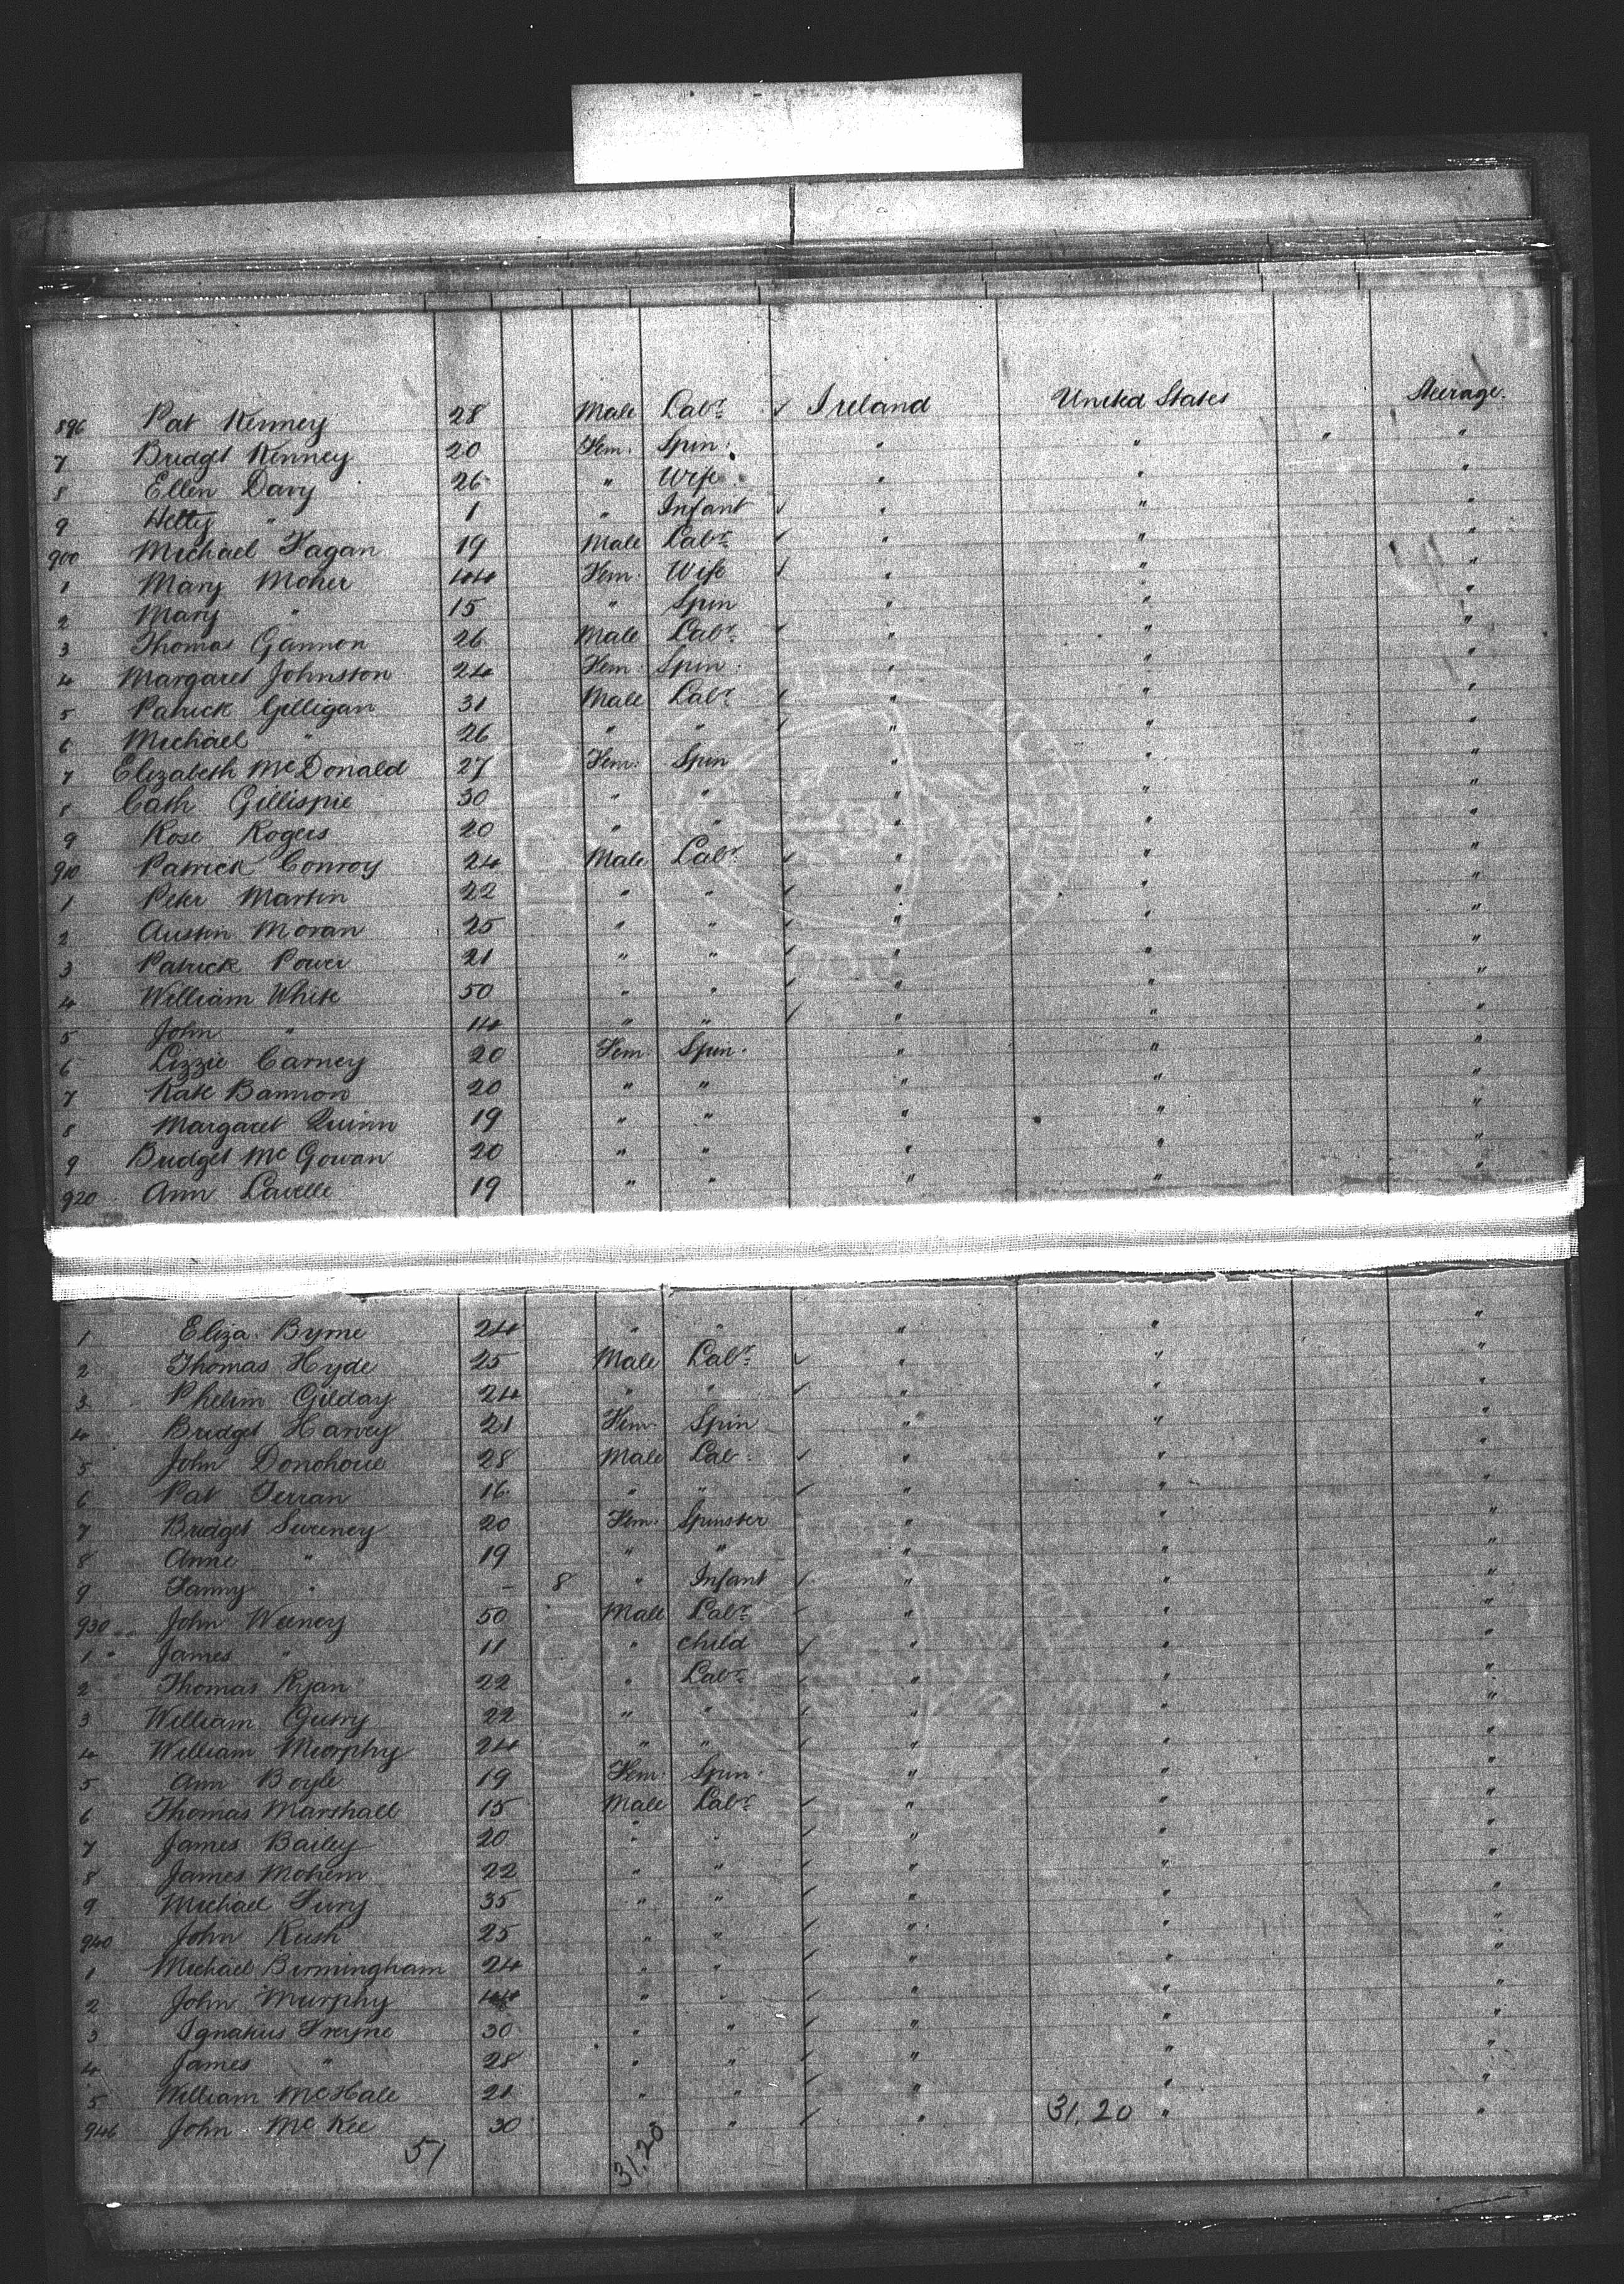 896 Pat Kenney 28 Male Labr. ✓ Ireland United States Steerage.
7 Bridget Kenney 20 Fem. Spin. " " " "
8 Ellen Davy 26 " Wife " " "
9 " 1 " Infant ✓ " " "
900 Michael Fagan 19 Male Labr. ✓ " " "
1 Mary Moher 44 Fem. Wife ✓ " " "
2 Mary " 15 " Spin " " "
3 Thomas Gannon 26 Male Labr. ✓ " " "
4 Margaret Johnston 24 Fem. Spin. " " "
5 Patrick Gilligan 31 Male Labr. ✓ " " "
6 Michael " 26 " " ✓ " " "
7 Elizabeth McDonald 27 Fem. Spin " " "
8 Cath Gillispie 30 " " " " "
9 Rose Rogers 20 " " " " "
910 Patrick Conroy 24 Male Labr. ✓ " " "
1 Peter Martin 22 " " ✓ " " "
2 Austin Moran 25 " " ✓ " " "
3 Patrick Power 21 " " ✓ " " "
4 William White 50 " " ✓ " " "
5 John " 14 " " ✓ " " "
6 Lizzie Carney 20 Fem. Spin. " " "
7 Kate Bannon 20 " " " " "
8 Margaret Quinn 19 " " " " "
9 Bridget McGowan 20 " " " " "
920 Ann Lavelle 19 " " " " "
1 Eliza Byrne 24 " " " " "
2 Thomas Hyde 25 Male Labr. ✓ " " "
3 Phelim Gilday 24 " " ✓ " " "
4 Bridget Harvey 21 Fem. Spin " " "
5 John Donohoue 28 Male Lab. ✓ " " "
6 Pat Ferran 16 " " ✓ " " "
7 Bridget Sweeney 20 Fem. Spinster " " "
8 Anne " 19 " " " " "
9 Fanny " - 8 " Infant ✓ " " "
930 John 50 Male Labr. ✓ " " "
1 James " 11 " child ✓ " " "
2 Thomas Ryan 22 " Labr. ✓ " " "
3 William 22 " " ✓ " " "
4 William Murphy 24 " " ✓ " " "
5 Ann Boyle 19 Fem. Spin. " " "
6 Thomas Marshall 15 Male Labr. ✓ " " "
7 James Bailey 20 " " ✓ " " "
8 James 22 " " ✓ " " "
9 Michael Fury 35 " " ✓ " " "
940 John Rush 25 " " ✓ " " "
1 Michael Birmingham 24 " " ✓ " " "
2 John Murphy 44 " " ✓ " " "
3 Ignatius Freyne 30 " " ✓ " " "
4 James " 28 " " ✓ " " "
5 William McHale 21 " " ✓ " " "
946 John McKee 30 " ✓ " 31,20 " "
51 31,20